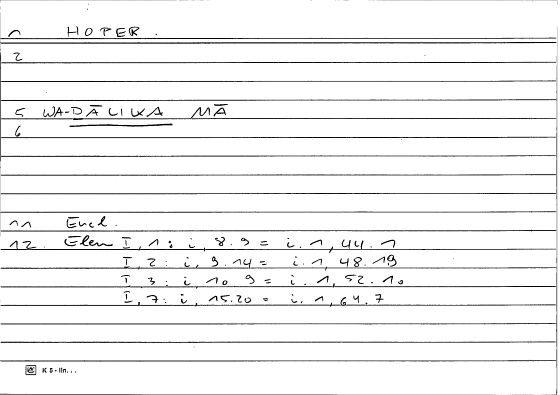 1 HOPER.
2
5 WA-DĀLIKA MĀ
6
11 Eucl.
12. Elem I, 1: i, 8.9 = i. 1, 44. 1
I, 2: i, 9.14 = i. 1, 48. 19
I, 3: i, 10. 9 = i. 1, 52. 10
I, 7: i, 15.20 = i. 1, 64. 7
K 5 - lin. . .